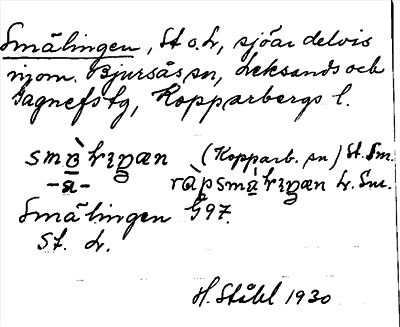 Smälingen, St o. L, sjöar delvis
inom Bjursås sn, Leksands och
Gagnefs tg, Kopparbergs l.
(Kopparb. sn) St. Sm.
-a- L. Sm.
Smälingen G97.
St. L.
H. Ståhl 1930